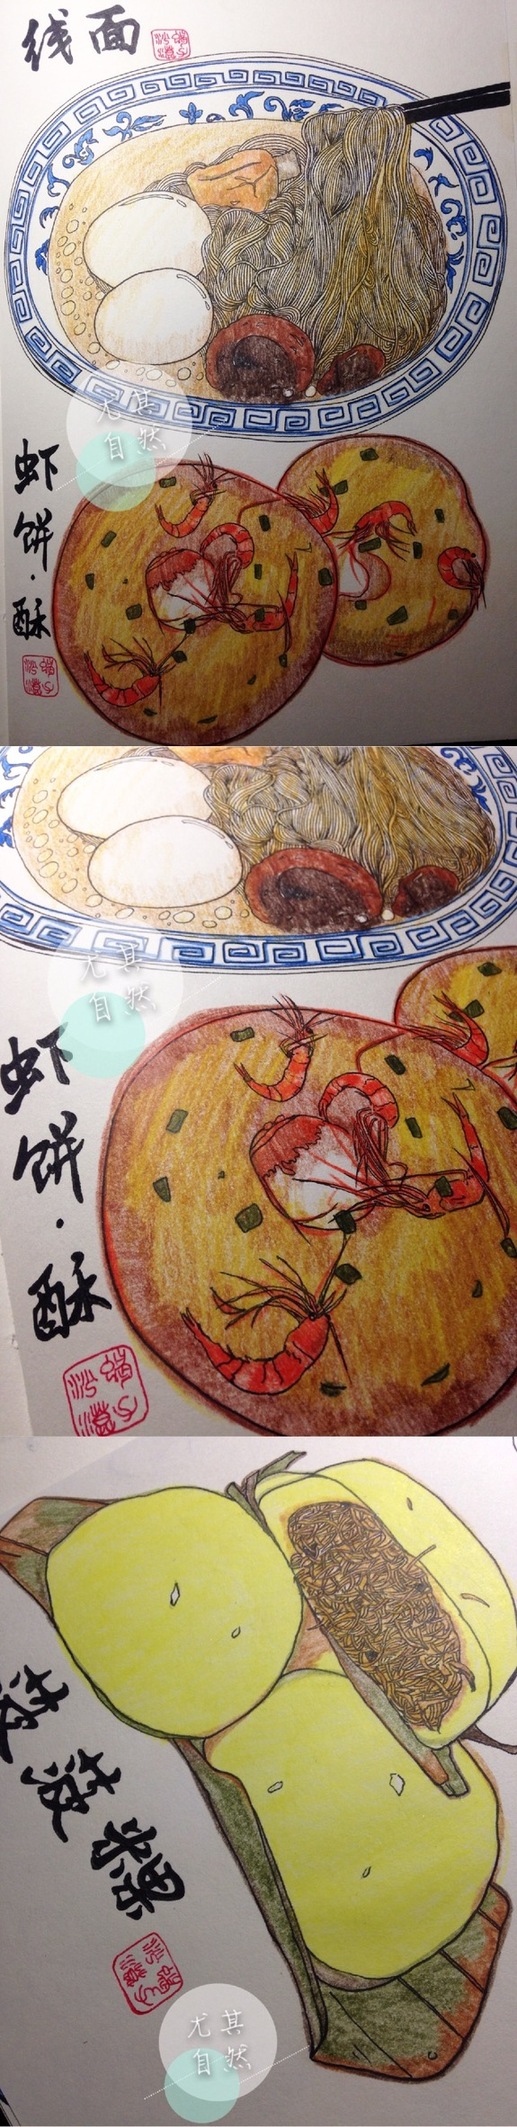 线面
尤其
自然
虾饼·酥
尤其
自然
虾饼·酥
菠菠粿
尤其
自然